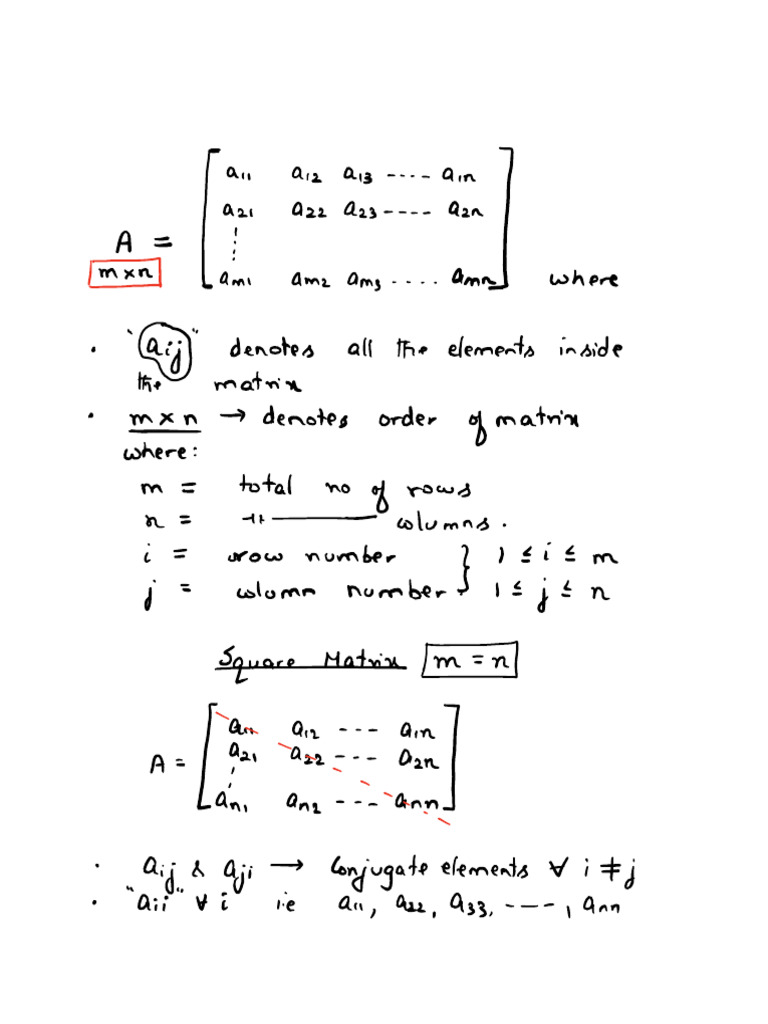 a11 a12 a13 ---- a1n
a21 a22 a23 ---- a2n
A =
m×n
am1 am2 am3 ..... amn where
• "aij" denotes all the elements inside
the matrix
• m × n → denotes order of matrix
where:
m = total no of rows
n = -11- columns.
i = row number } 1 ≤ i ≤ m
j = column number } 1 ≤ j ≤ n
Square Matrix m = n
a11 a12 --- a1n
a21 a22 --- a2n
A =
an1 an2 --- ann
• aij & aji → Conjugate elements ∀ i ≠ j
• "aii" ∀ i i.e a11, a22, a33, ----, ann